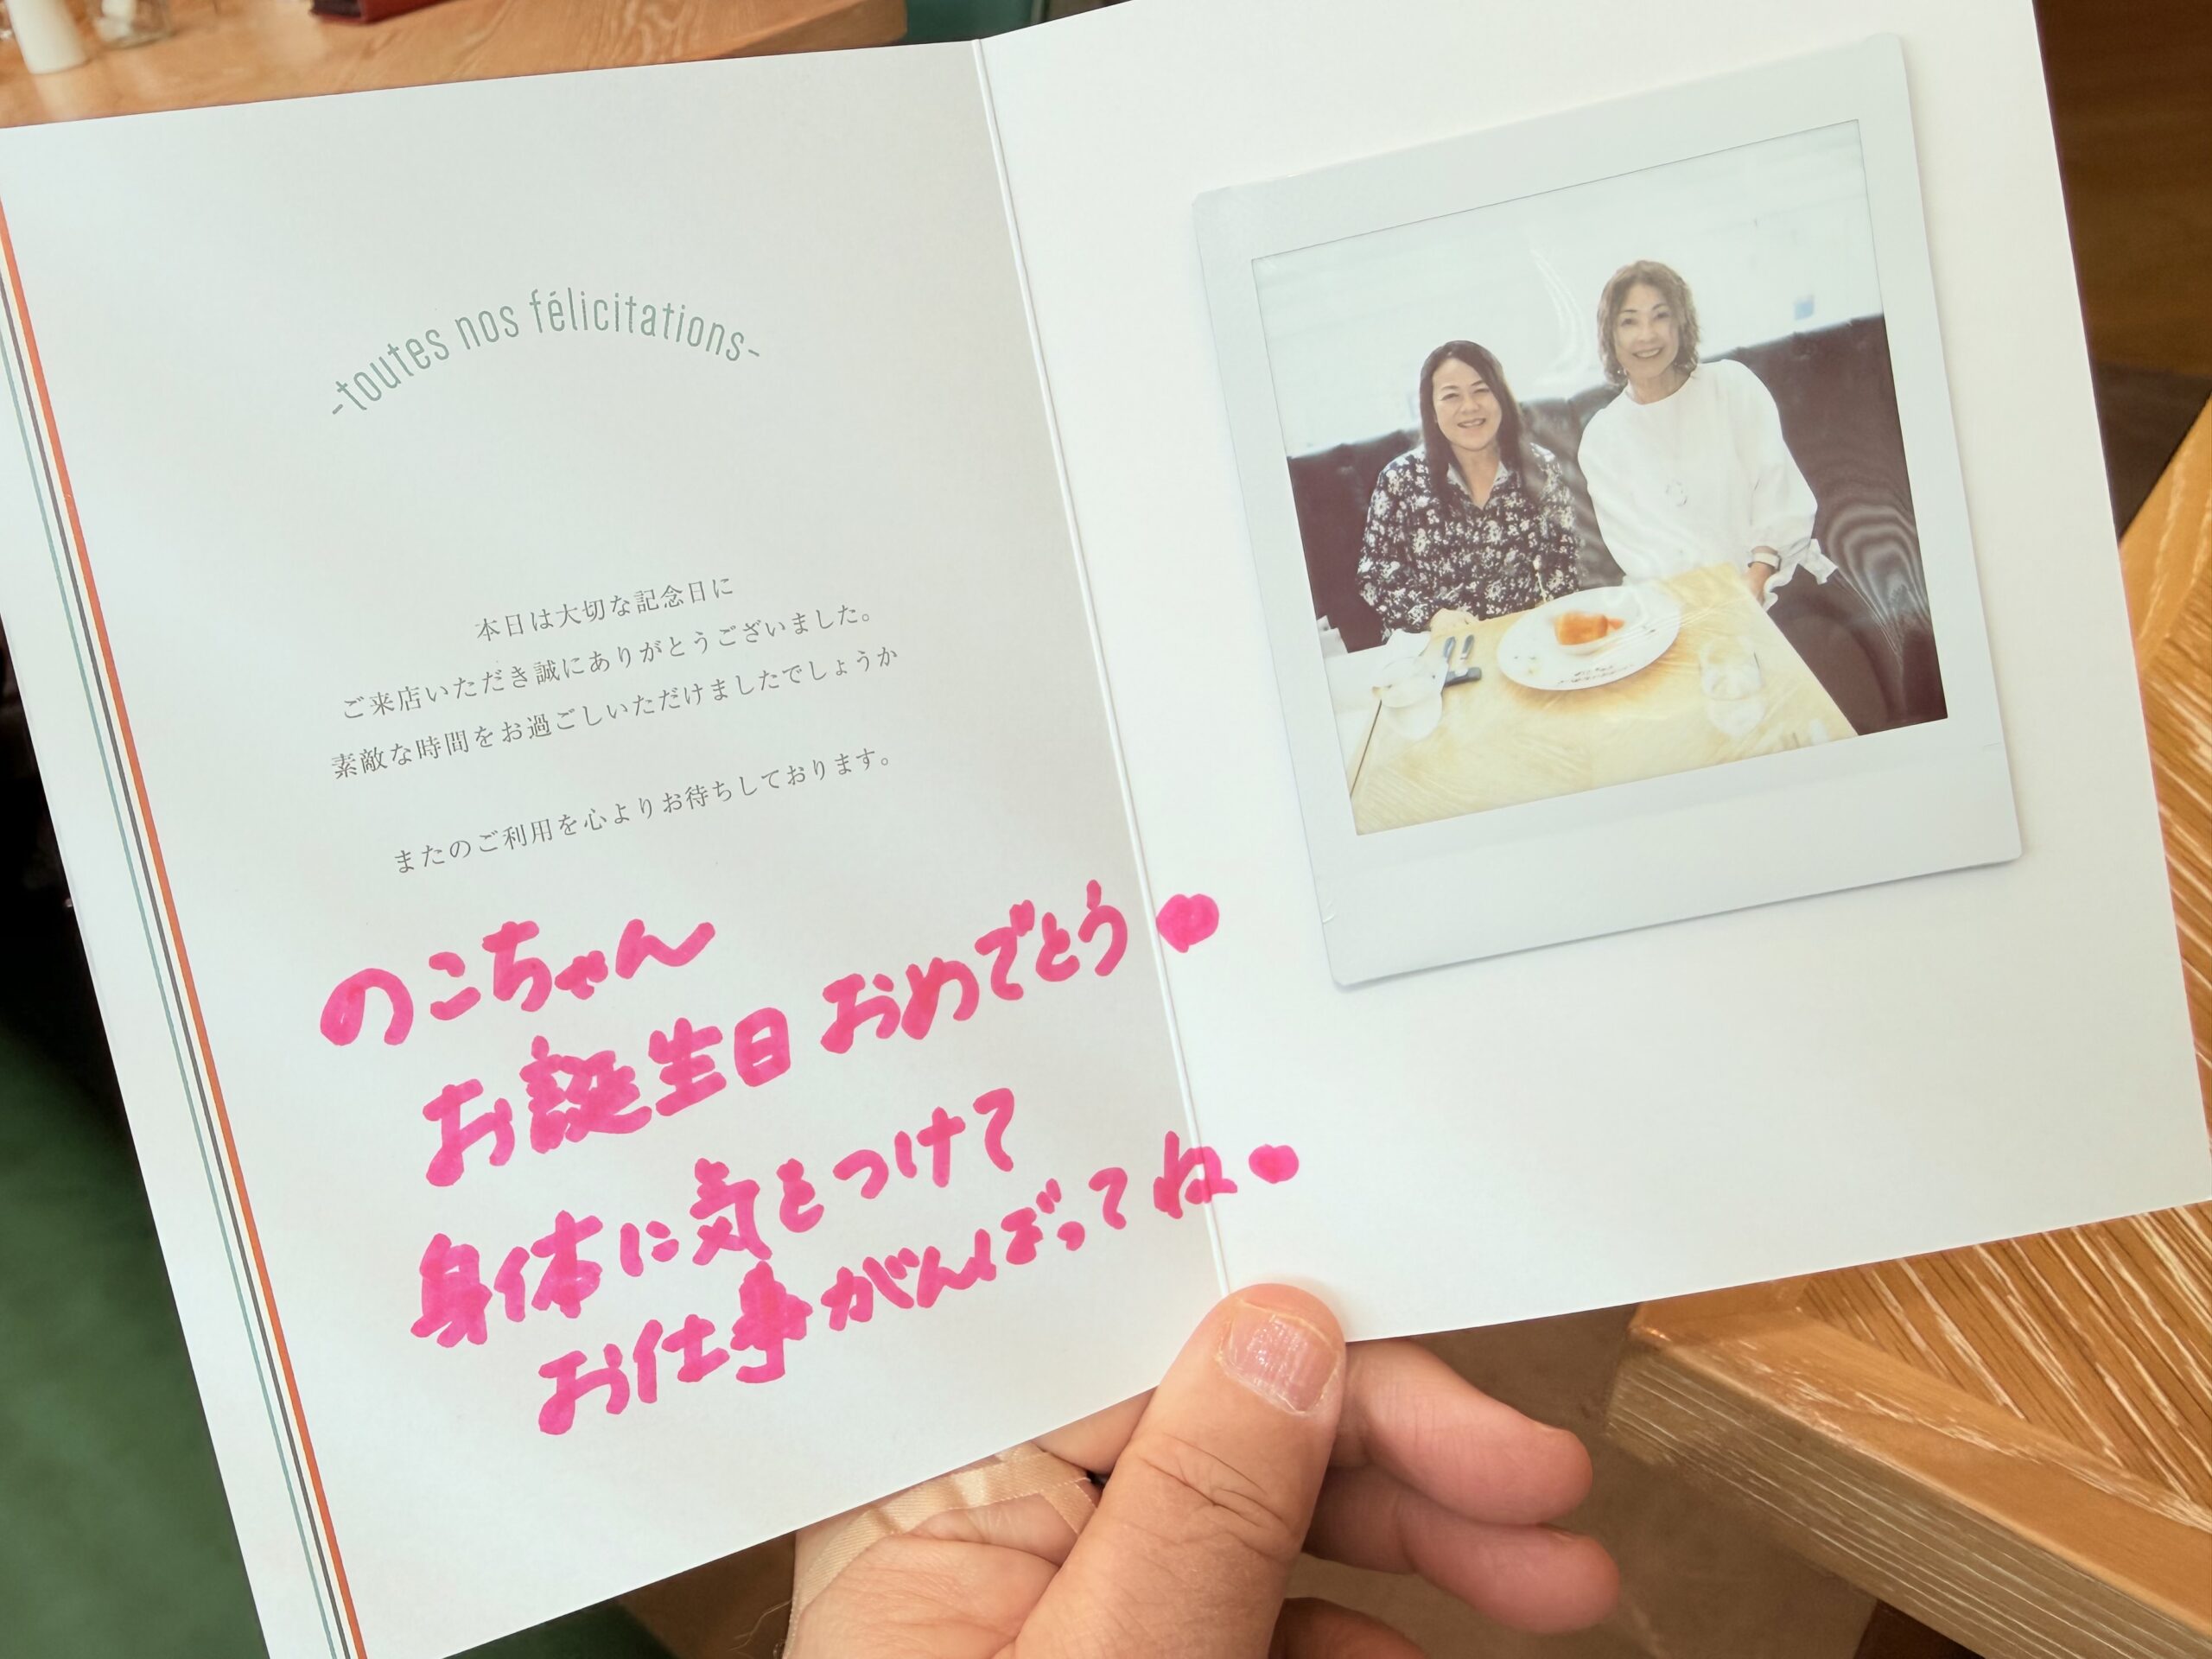 -toutes nos félicitations-
本日は大切な記念日に
ご来店いただき誠にありがとうございました。
素敵な時間をお過ごしいただけましたでしょうか
またのご利用を心よりお待ちしております。
のこちゃん
お誕生日おめでとう♥
身体に気をつけて
お仕事がんばってね♥